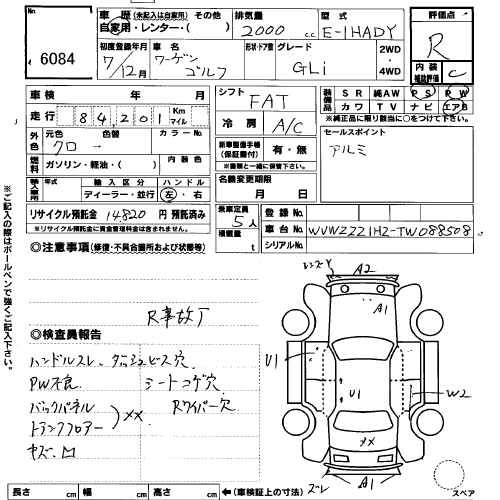 6084
車歴 (未記入は自家用) その他
自家用・レンター・( )
排気量
2000 c.c
型式
E-1HADY
評価点
R
内装
補助評価
C
初度登録年月
7/12月
車名
ワーゲン
ゴルフ
形状・ドア数
グレード
GLi
2WD
・
4WD
車検 年 月
走行 84,201 Km
マイル
外色
元色 色替 カラーNo.
クロ →
燃料
ガソリン・軽油・( )
内装色
輸入車用
年式
輸入区分
ディーラー・並行
ハンドル
左・右
リサイクル預託金 14820 円 預託済み
※リサイクル預託金に資金管理料金は含まれません。
シフト
FAT
冷房
A/C
新車整備手帳
(保証書付)
有・無
※書類と一緒に保管して下さい。
名義変更期限
月 日
装備品
SR 純AW PS PW
カワ TV ナビ エアB
※純正品に限り該当に○をつけて下さい。
セールスポイント
アルミ
乗車定員
5人
積載量
t
登録No.
車台No. WVWZZZ1HZ-TW088508
シリアルNo.
◎注意事項 (修復・不具合箇所および状態等)
R事故了
◎検査員報告
ハンドルスレ、ダッシュビス穴
PW不良 シートコゲ穴
バックパネル
トランクフロアー
) XX
Rワイパー穴
キズ、凹
レンズY
A2
A1
U1
U1
W2
XX
A1
ズレ
スペア
長さ cm 幅 cm 高さ cm ←(車検証上の寸法)
※ご記入の際はボールペンで強くご記入下さい。